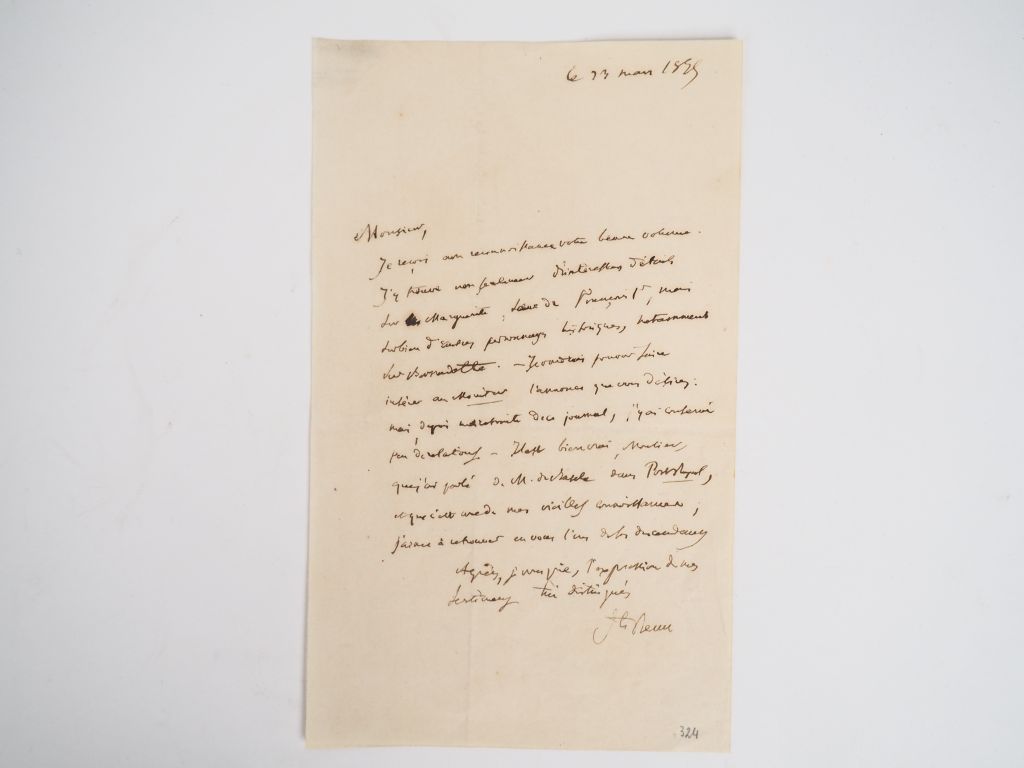 le 23 mars 18
Monsieur,
Je reçois avec reconnaissance votre beau volume.
J'y trouve non seulement d'intéressans détails
sur les Marguerite, sœur de François Ier, mais
sur bien d'autres personnages historiques, notamment
sur Bernadotte. — Je voudrais pouvoir faire
insérer au Moniteur l'annonce que vous désirez:
mais, depuis ma retraite de ce journal, j'y ai conservé
peu de relations — Il est bien vrai, Monsieur,
que j'ai parlé de M. de dans Port-Royal,
et que c'est une de mes vieilles connaissances;
j'aime à retrouver en vous l'un de ses descendants
Agréez, je vous prie, l'expression de mes
sentimens très distingués
Ste Beuve
324